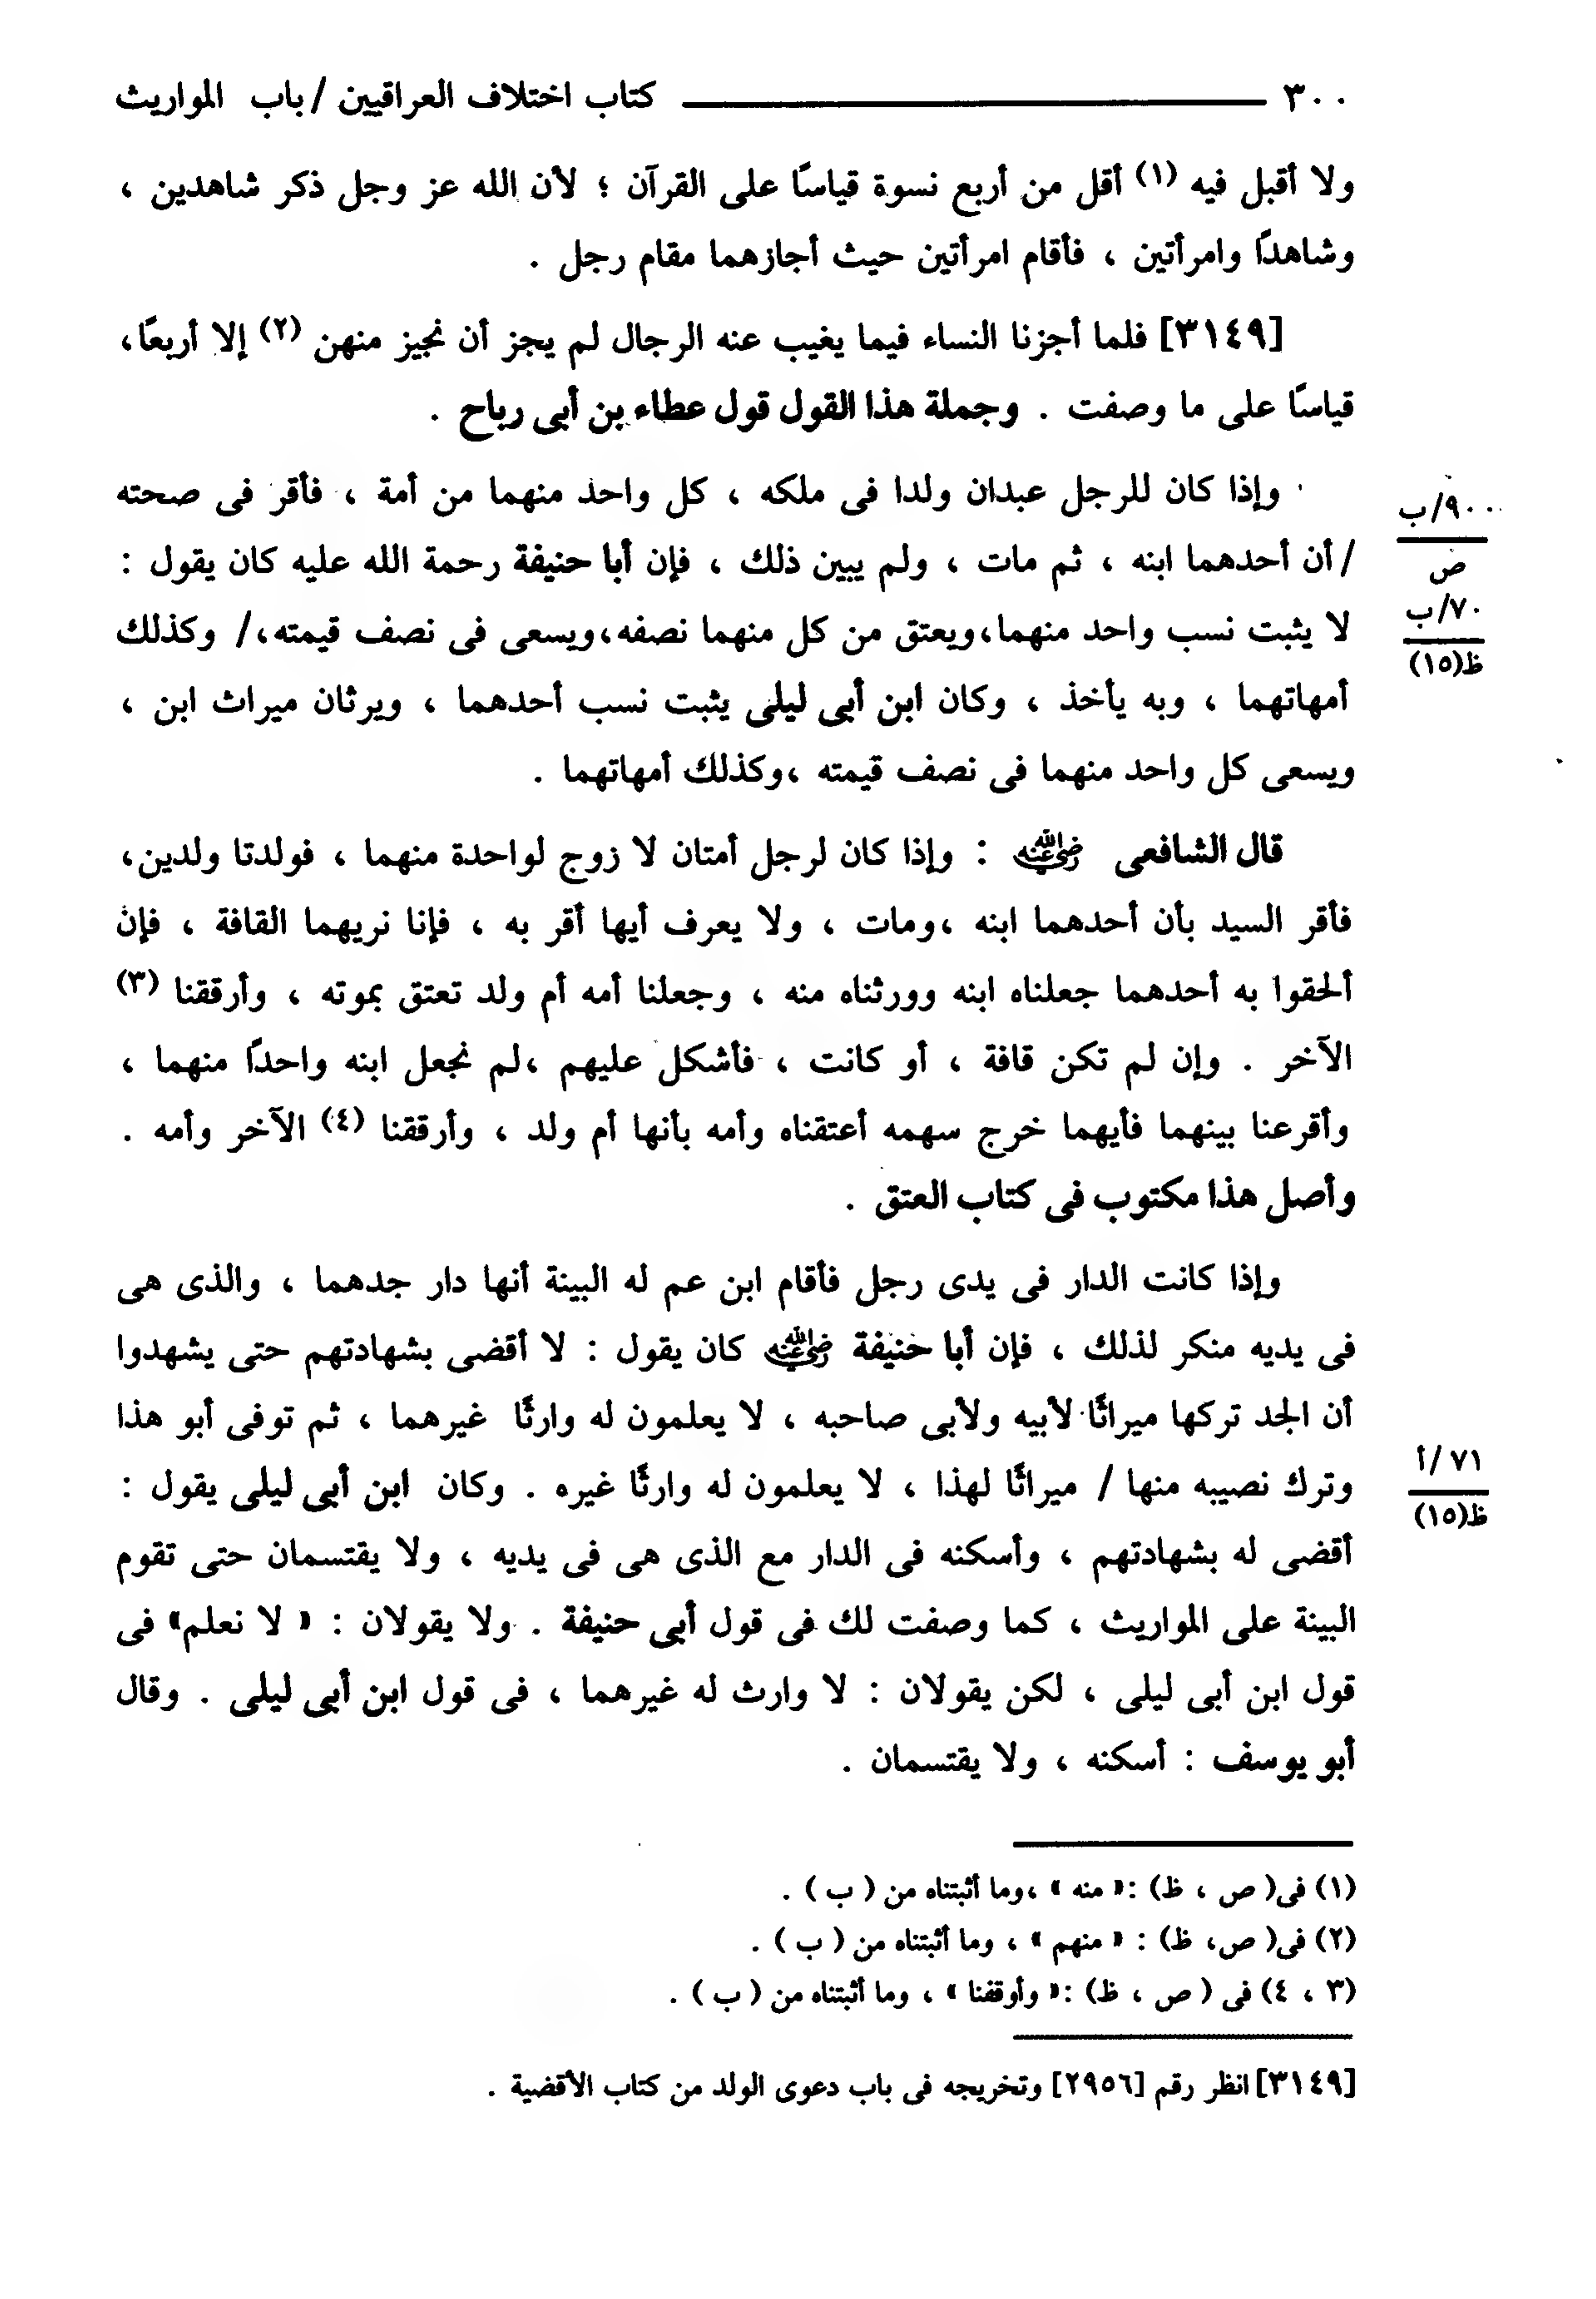 ٣٠٠ كتاب اختلاف العراقيين / باب المواريث
ولا أقبل فيه (١) أقل من أربع نسوة قياسًا على القرآن ؛ لأن الله عز وجل ذكر شاهدين ،
وشاهدًا وامرأتين ، فأقام امرأتين حيث أجازهما مقام رجل .
[٣١٤٩] فلما أجزنا النساء فيما يغيب عنه الرجال لم يجز أن نجيز منهن (٢) إلا أربعًا،
قياسًا على ما وصفت . وجملة هذا القول قول عطاء بن أبى رباح .
وإذا كان للرجل عبدان ولدا فى ملكه ، كل واحد منهما من أمة ، فأقر فى صحته
٩٠٠/ب
/ أن أحدهما ابنه ، ثم مات ، ولم يبين ذلك ، فإن أبا حنيفة رحمة الله عليه كان يقول :
ص
٧٠/ب
لا يثبت نسب واحد منهما،ويعتق من كل منهما نصفه،ويسعى فى نصف قيمته،/ وكذلك
ظ(١٥)
أمهاتهما ، وبه يأخذ ، وكان ابن أبى ليلى يثبت نسب أحدهما ، ويرثان ميراث ابن ،
ويسعى كل واحد منهما فى نصف قيمته ،وكذلك أمهاتهما .
قال الشافعى رضي الله عنه : وإذا كان لرجل أمتان لا زوج لواحدة منهما ، فولدتا ولدين،
فأقر السيد بأن أحدهما ابنه ،ومات ، ولا يعرف أيها أقر به ، فإنا نريهما القافة ، فإن
ألحقوا به أحدهما جعلناه ابنه وورثناه منه ، وجعلنا أمه أم ولد تعتق بموته ، وأرققنا (٣)
الآخر . وإن لم تكن قافة ، أو كانت ، فأشكل عليهم ،لم نجعل ابنه واحدًا منهما ،
وأقرعنا بينهما فأيهما خرج سهمه أعتقناه وأمه بأنها أم ولد ، وأرققنا (٤) الآخر وأمه .
وأصل هذا مكتوب فى كتاب العتق .
وإذا كانت الدار فى يدى رجل فأقام ابن عم له البينة أنها دار جدهما ، والذى هى
فى يديه منكر لذلك ، فإن أبا حنيفة رضي الله عنه كان يقول : لا أقضى بشهادتهم حتى يشهدوا
أن الجد تركها ميراثًا لأبيه ولأبى صاحبه ، لا يعلمون له وارثًا غيرهما ، ثم توفى أبو هذا
٧١/أ
وترك نصيبه منها / ميراثًا لهذا ، لا يعلمون له وارثًا غيره . وكان ابن أبى ليلى يقول :
ظ(١٥)
أقضى له بشهادتهم ، وأسكنه فى الدار مع الذى هى فى يديه ، ولا يقتسمان حتى تقوم
البينة على المواريث ، كما وصفت لك فى قول أبى حنيفة . ولا يقولان : « لا نعلم» فى
قول ابن أبى ليلى ، لكن يقولان : لا وارث له غيرهما ، فى قول ابن أبى ليلى . وقال
أبو يوسف : أسكنه ، ولا يقتسمان .
(١) فى( ص ، ظ) :« منه » ،وما أثبتناه من ( ب ) .
(٢) فى( ص، ظ) : « منهم » ، وما أثبتناه من ( ب ) .
(٣ ، ٤) فى ( ص ، ظ) :« وأوقفنا » ، وما أثبتناه من ( ب ) .
[٣١٤٩] انظر رقم [٢٩٥٦] وتخريجه فى باب دعوى الولد من كتاب الأقضية .